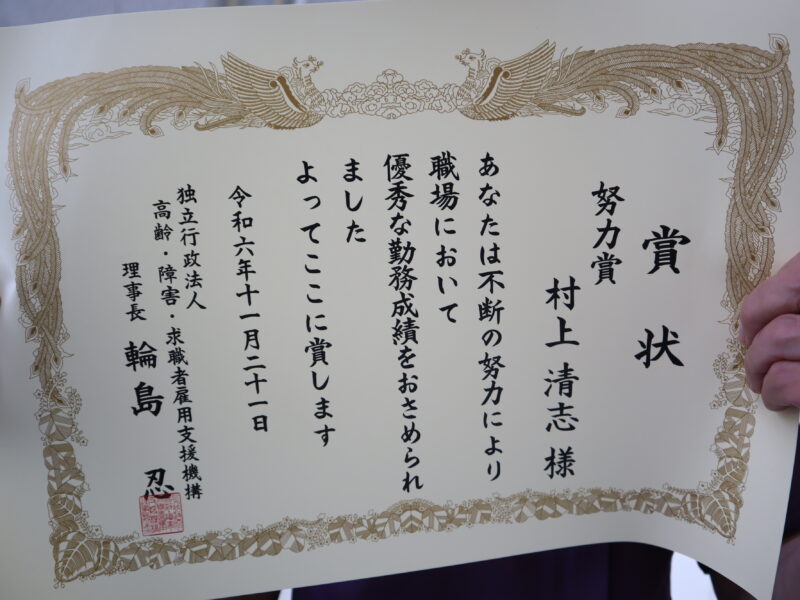 賞状
努力賞
村上清志様
あなたは不断の努力により
職場において
優秀な勤務成績をおさめられ
ました
よってここに賞します
令和六年十一月二十一日
独立行政法人
高齢・障害・求職者雇用支援機構
理事長 輪島 忍